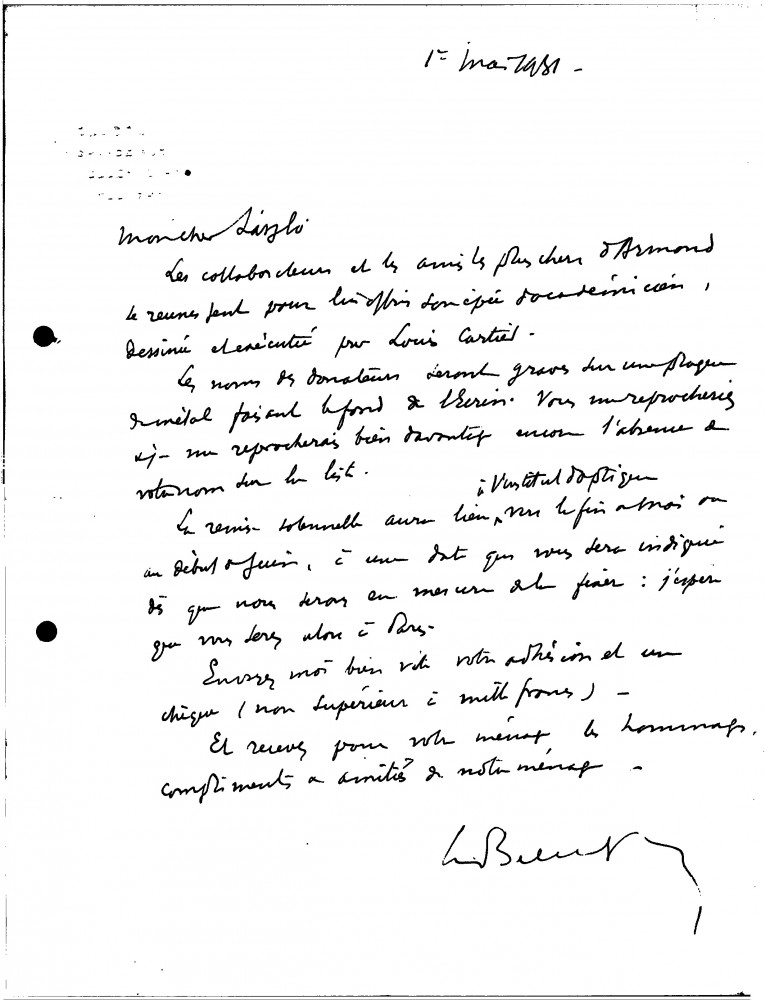 1er Mai 1951 -
Mon cher László
Les collaborateurs et les amis les plus chers d'Armand
se réunissent pour lui offrir son épée d'académicien,
dessinée et exécutée par Louis Cartier.
Les noms des donateurs seront gravés sur une plaque
de métal faisant le fond de l'Ecrin. Vous me reprocheriez
et je me reprocherais bien davantage encore l'absence de
votre nom sur la liste.
à l'Institut d'optique
La remise solennelle aura lieu, vers la fin de mai ou
au début de Juin, à une date qui vous sera indiquée
dès que nous serons en mesure de la fixer : j'espère
que vous serez alors à Paris.
Envoyez moi bien vite votre adhésion et un
chèque (non supérieur à mille francs) -
Et recevez pour votre ménage les hommages,
compliments et amitiés de notre ménage -